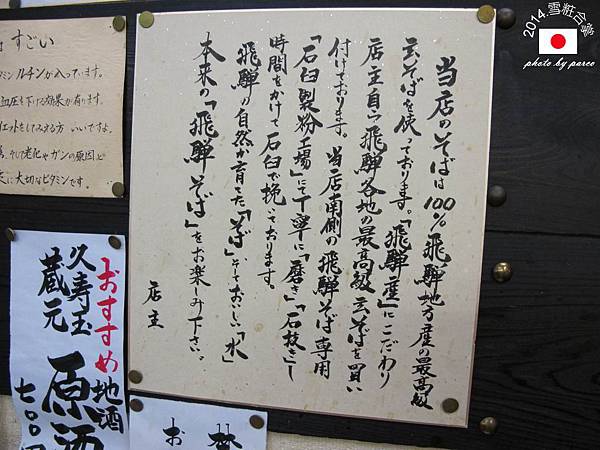 当店のそばは100%飛騨地方産の最高級
玄そばを使っております。「飛騨産」にこだわり
店主自ら飛騨各地の最高級玄そばを買い
付けております。当店南側の飛騨そば専用
「石臼製粉工場」にて丁寧に「磨き」「石抜き」し
時間をかけて石臼で挽いております。
飛騨の自然が育てた、「そば」そしておいしい「水」
本来の「飛騨そば」をお楽しみ下さい。
店主
すごい
ルチンが入っています。
血圧を下げる効果が有ります。
いいですよ。
老化やガンの原因と
大切なビタミンです。
おすすめ地酒
久寿玉
蔵元
原酒
七〇〇
お
2014.雪粧合掌
photo by parco